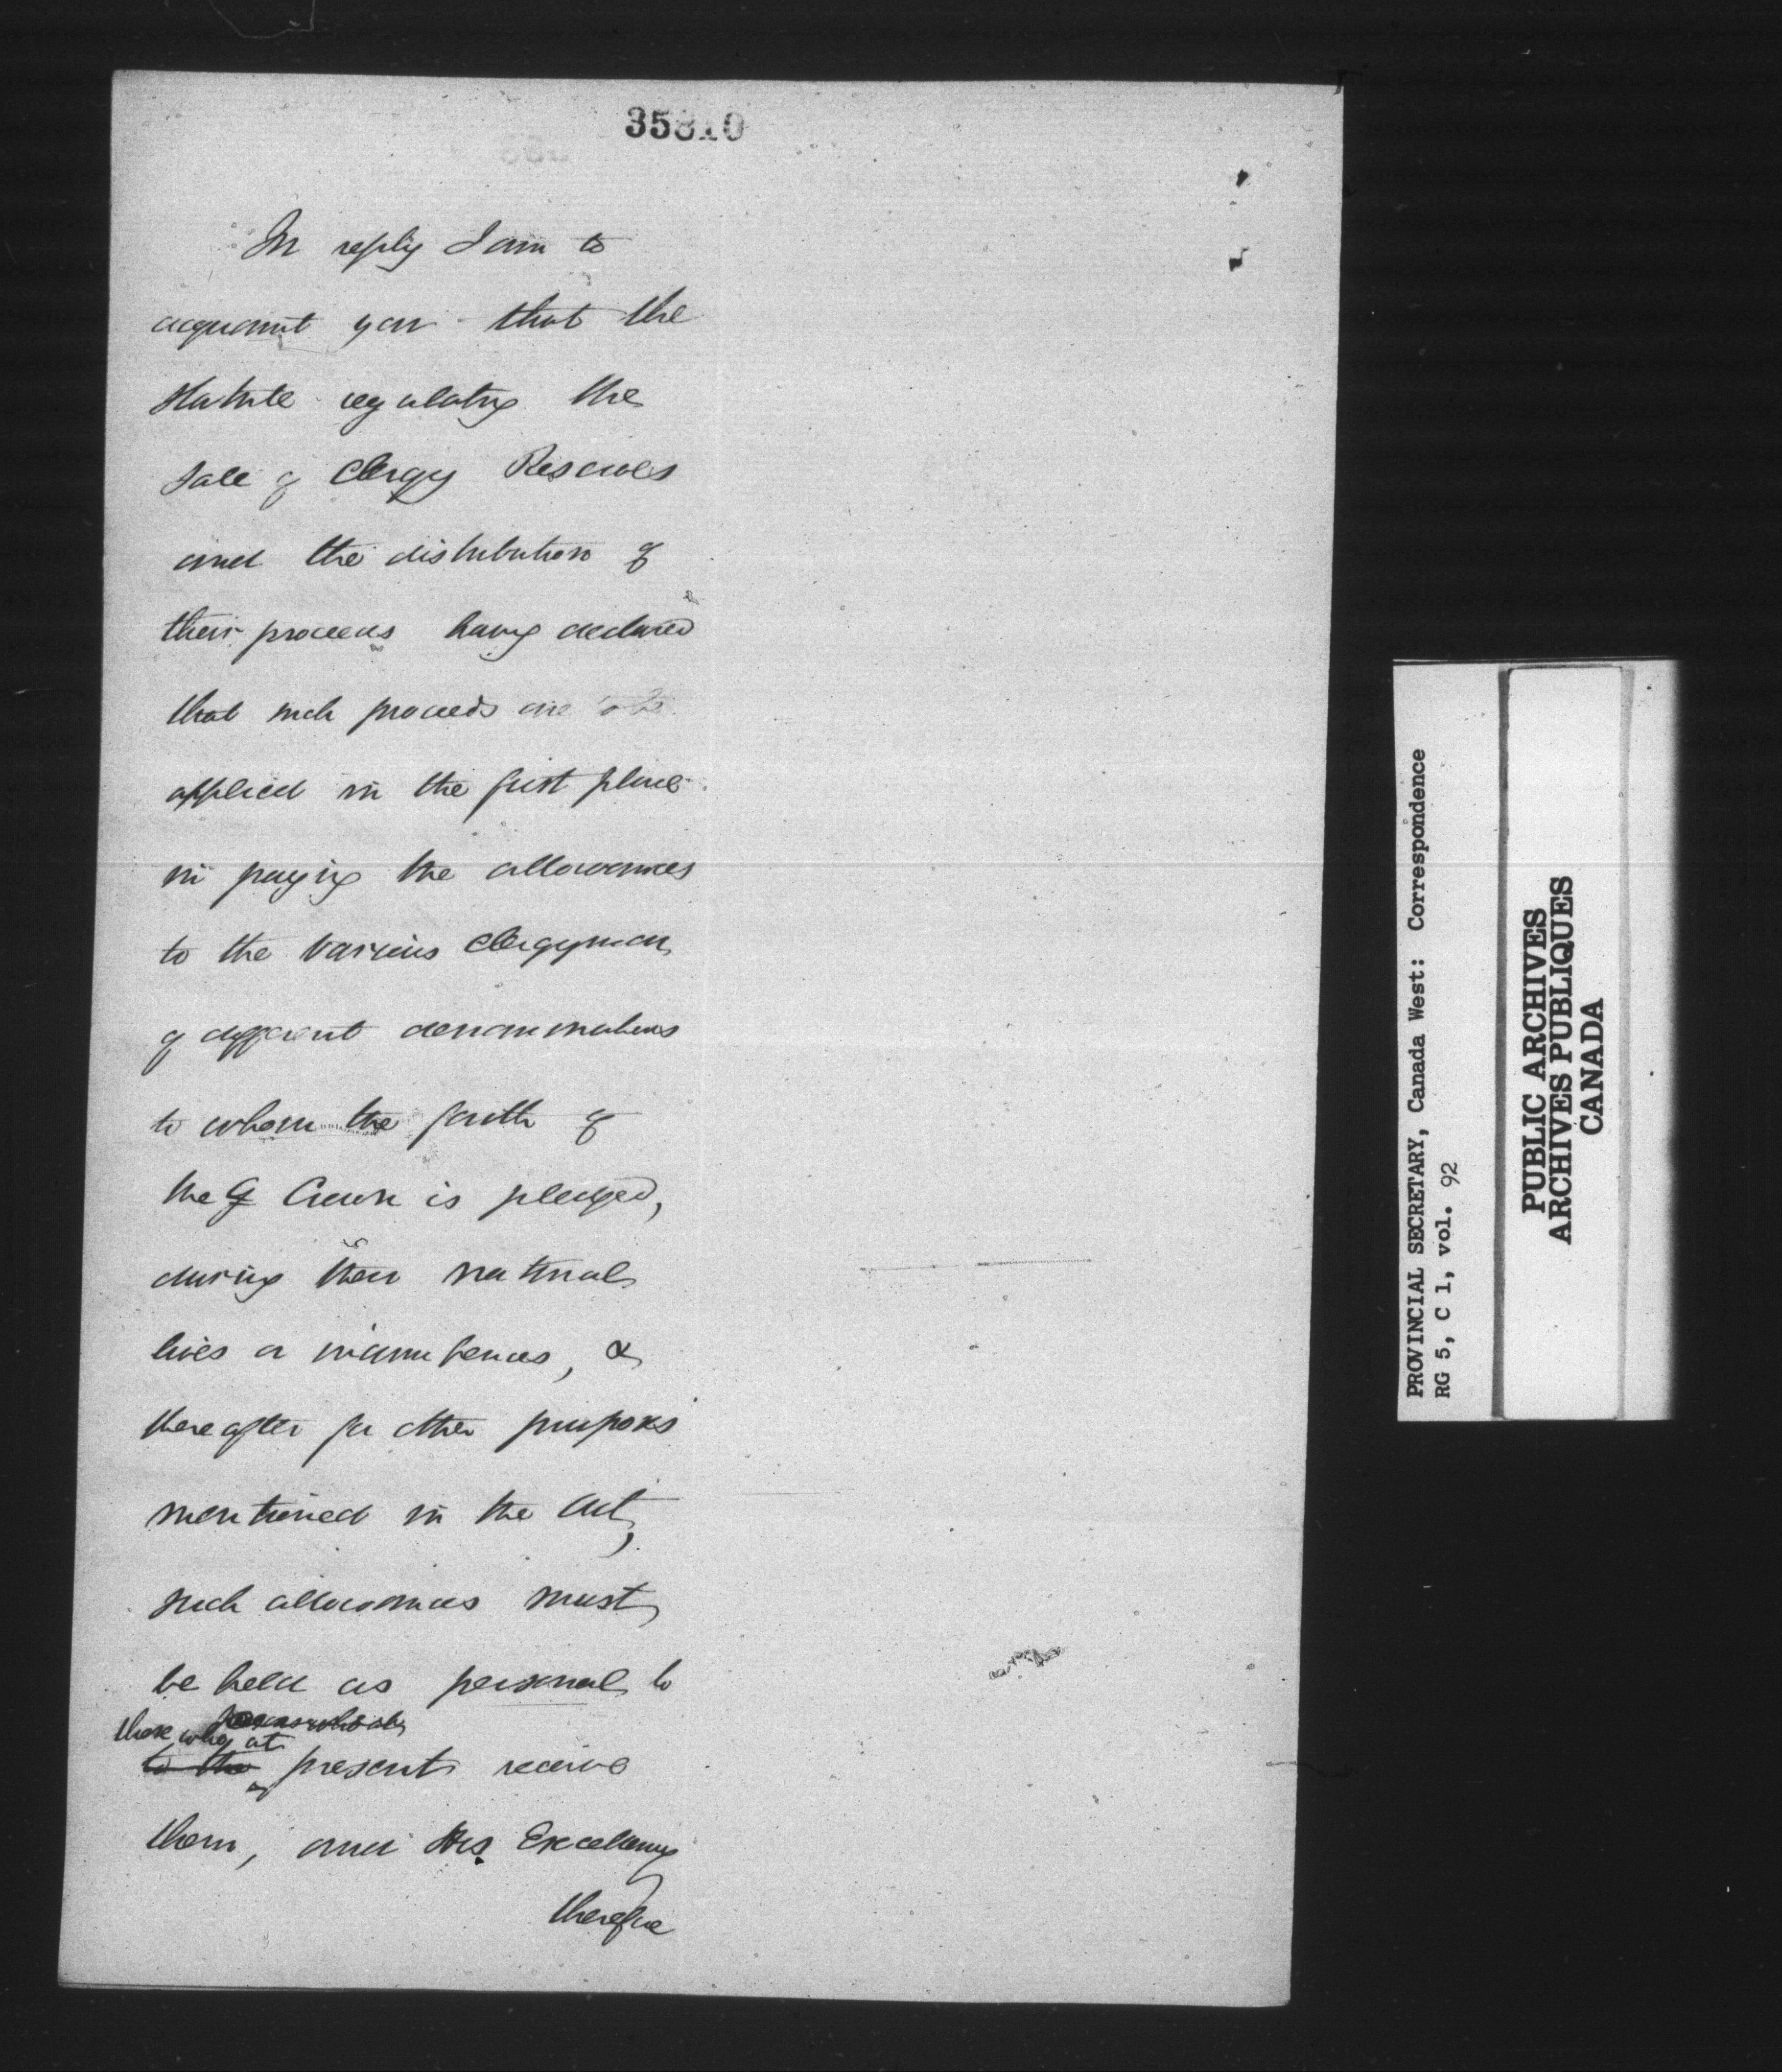 35810
In reply I am to
acquaint you that the
Statute regulating the
Sale of Clergy Reserves
and the distribution of
their proceeds having declared
that such proceeds are to be
applied in the first place
in paying the allowances
to the various Clergymen
of different denominations
to whom the faith of
the Crown is pledged,
during their natural
lives or incumbencies, &
thereafter for other purposes
mentioned in the Act,
such allowances must
be held as personal to
those who at
to the present receive
them, and His Excellency
therefore
PROVINCIAL SECRETARY, Canada West: Correspondence
RG 5, C 1, vol. 92
PUBLIC ARCHIVES
ARCHIVES PUBLIQUES
CANADA